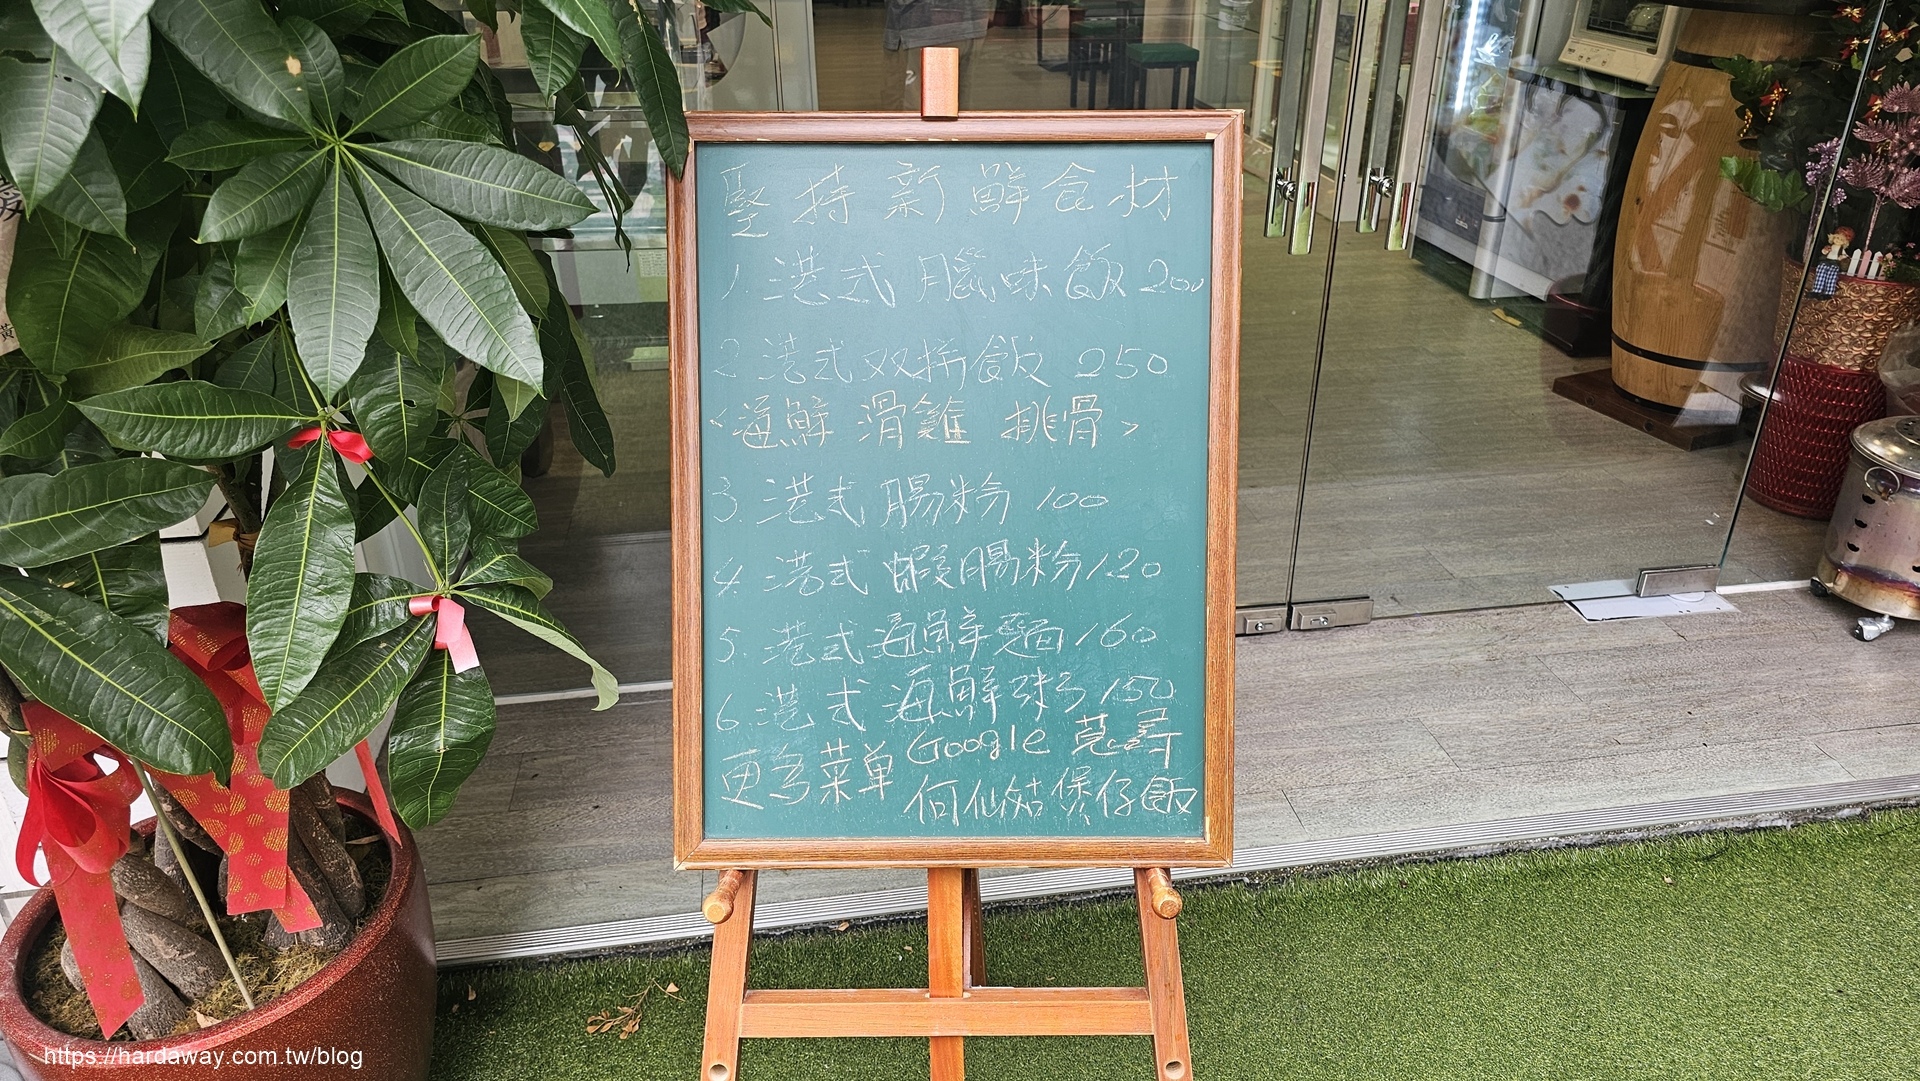 堅持新鮮食材
1. 港式臘味飯 200
2. 港式双拼飯 250
<海鮮 滑雞 排骨>
3. 港式腸粉 100
4. 港式蝦腸粉 120
5. 港式海鮮麵 160
6. 港式海鮮粥 150
更多菜單 Google 蒐尋
何仙姑煲仔飯
https://hardaway.com.tw/blog